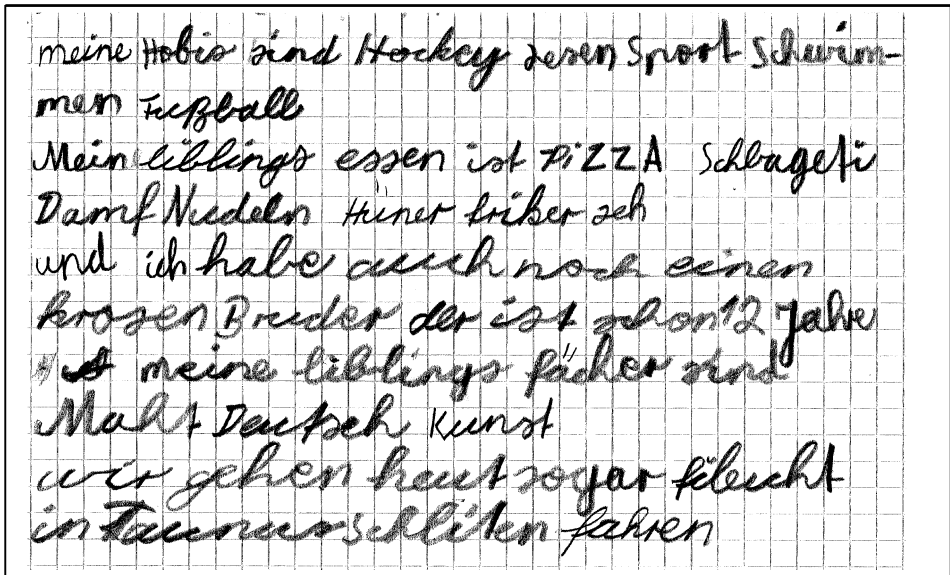 meine Hobis sind Hockey lesen Sport Schwim-
men Fußball
Mein liblings essen ist PiZZA Schbageti
Damf Nudeln Hüner friker seh
und ich habe auch noch einen
krosen Bruder der ist schon 12 Jahre
meine liblings fächer sind
Maht Deutsch Kunst
wir gehen heut sogar fileucht
in Taunus Schliten fahren